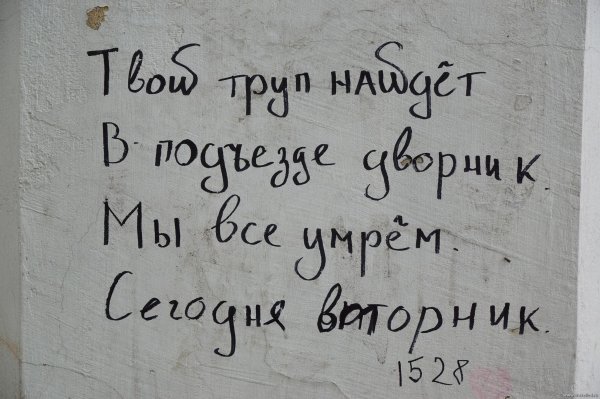 Твой труп найдёт
В подъезде дворник.
Мы все умрём.
Сегодня вторник.
1528